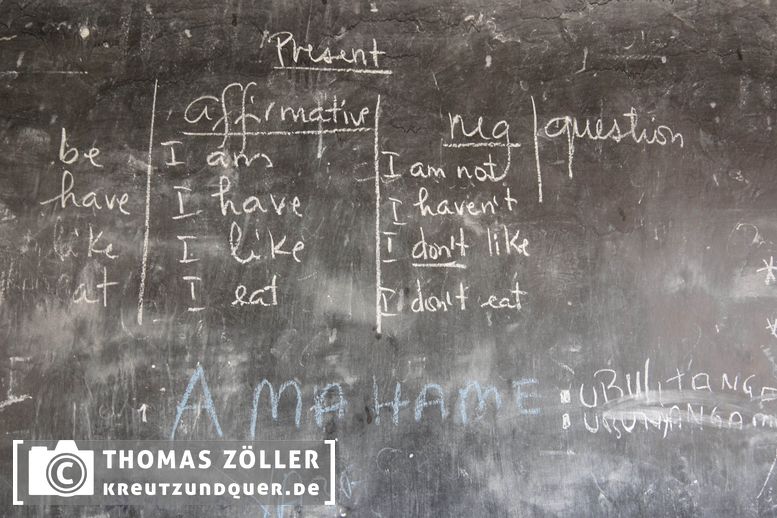 Present
affirmative neg question
be I am I am not
have I have I haven't
like I like I don't like
eat I eat I don't eat
AMAHAME :
THOMAS ZÖLLER
KREUTZUNDQUER.DE